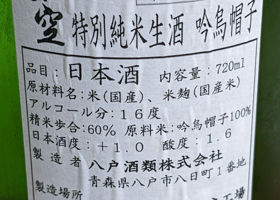 空 特別純米生酒 吟烏帽子
品目：日本酒 内容量：720ml
原材料名：米(国産)、米麹(国産米)
アルコール分：１６度
精米歩合：60% 原料米：吟烏帽子100%
日本酒度：＋1.0 酸度：1.6
製造者 八戸酒類株式会社
青森県八戸市八日町１番地
製造場所 工場